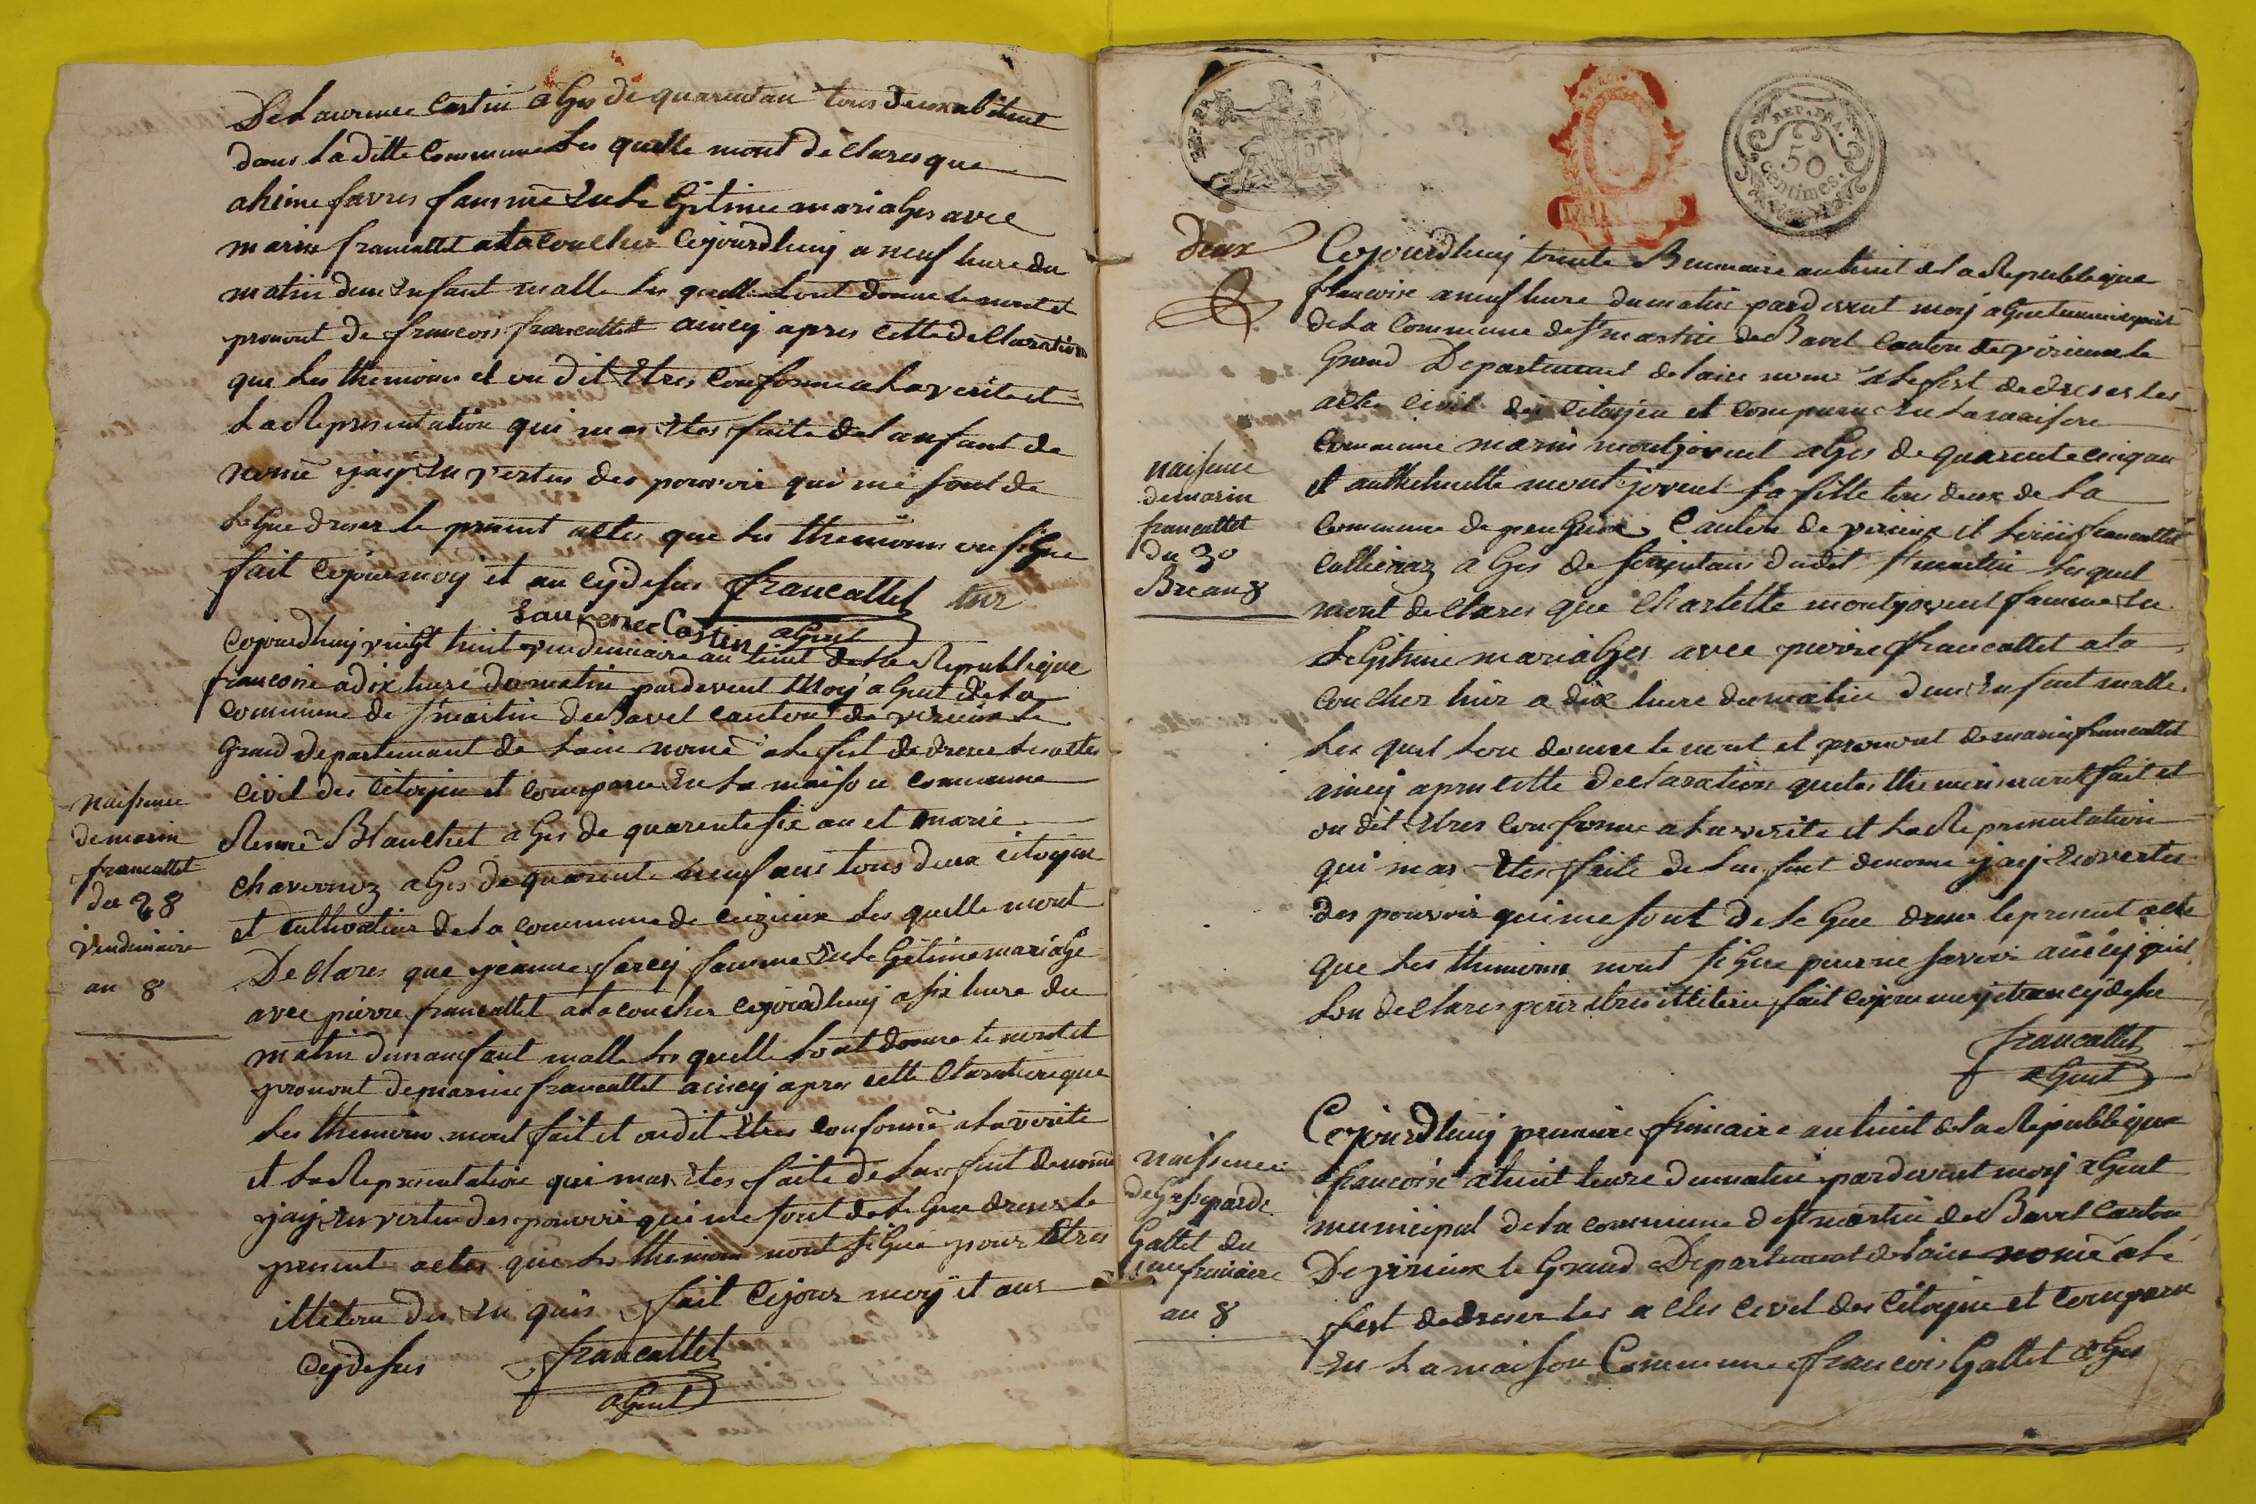 De Laurence Castin aGes de quarentan tous deux abitant
dans La ditte Commune Les quelle mont declares que
ahime favres famme En Le Gitime mariages avec
marin francallet ata coucher Cejourdhuy a neuf heure du
matin dun Enfant malle Les quelle Lont donne Le nont et
pronont de francois francallet aincy apres cette declaration
que Les themoins et on dit Etres Conforme a La verite et
La Representation qui mas Etes faite de Lanfant de
nomé jay En vertus des pouvoir qui me sont de
Legue dreser le present actes que Les themoins on signe
fait Cejour moy et an cy desus francallet
Laurence Castin aGent
Cejourdhuy vingt huit vendemiaire an huit de La Republique
francoise a dix heure du matin pardevent Moy aGent de La
commune de St martin de Bavel canton de virieux Le
Grand departemant de Lain nomé a Le fest de dreser Les actes
civil des citoyen et comparu En La maison commune
Remé Blanchet aGes de quarente six an et marie
chavornoz aGes de quarente neuf ans tous deux citoyen
et Cultivateur de La commune de ceizieux Les quelle mont
Declares que jeanne farcy famme En Le Gitime mariaGe
avec pierre francallet ata coucher cejourdhuy a six heure du
matin dun anfant malle Les quelle Lont donne Le nont et
pronont de marin francallet aincy apres cette Claration que
Les themoins mont fait et on dit Etres conforme a La verite
et La Representation qui mas Etes faite de Lanfant denomé
jay En vertu des pouvoir qui me sont de Legue dreser Le
present actes que Les themoins nont signe pour Etres
illitere des En quis fait Cejour moy et ans
cy desus francallet
aGent
naissence
de marin
francallet
du 28
vendemiaire
an 8
REP. FRA.
50
centimes.
deux
Cejourdhuy trente Brumaire an huit de La Republique
francoise a neuf heure du matin pardevent moy aGent municipal
de La Commune de St martin de Bavel Canton de virieux le
Grand Departement de Lain nomé a Le fest de dreser Les
acte civil des citoyen et comparu En La maison
Commune marin montjovent aGes de quarente cinq an
et anthelmette montjovent sa fille tous deux de La
commune de Canton de virieux et francallet
aGes de ans dudit St martin Les quel
mont declares que Charlotte montjovent famme En
LeGitime mariaGes avec pierre francallet ata
coucher hier a dix heure du matin dun Enfant malle
Les quel Lon donne Le nont et pronont de marin francallet
aincy apres cette declaration que Les themoins mont fait et
on dit Etres Conforme a La verite et La Representation
qui mas Etes faite de Lanfant denomé jay En vertu
des pouvoir qui me sont de LeGue dreser le present acte
que Les themoins nont siGne pour ne savoir aincy quil
Lon declares pour Etres illitere fait Cejour moy et an cy desu
francallet
aGent
naissence
de marin
francallet
du 30
Bre an 8
Cejourdhuy premire frimaire an huit de La Republique
francoise a huit heure du matin pardevent moy aGent
municipal de La commune de St martin de Bavel Canton
De virieux le Grand Departement de Lain nomé a Le
fest de dreser Les actes civil des citoyen et comparu
En La maison Commune francois Gallet aGes
naissence
de Gasparde
Gallet du
1me frimaire
an 8